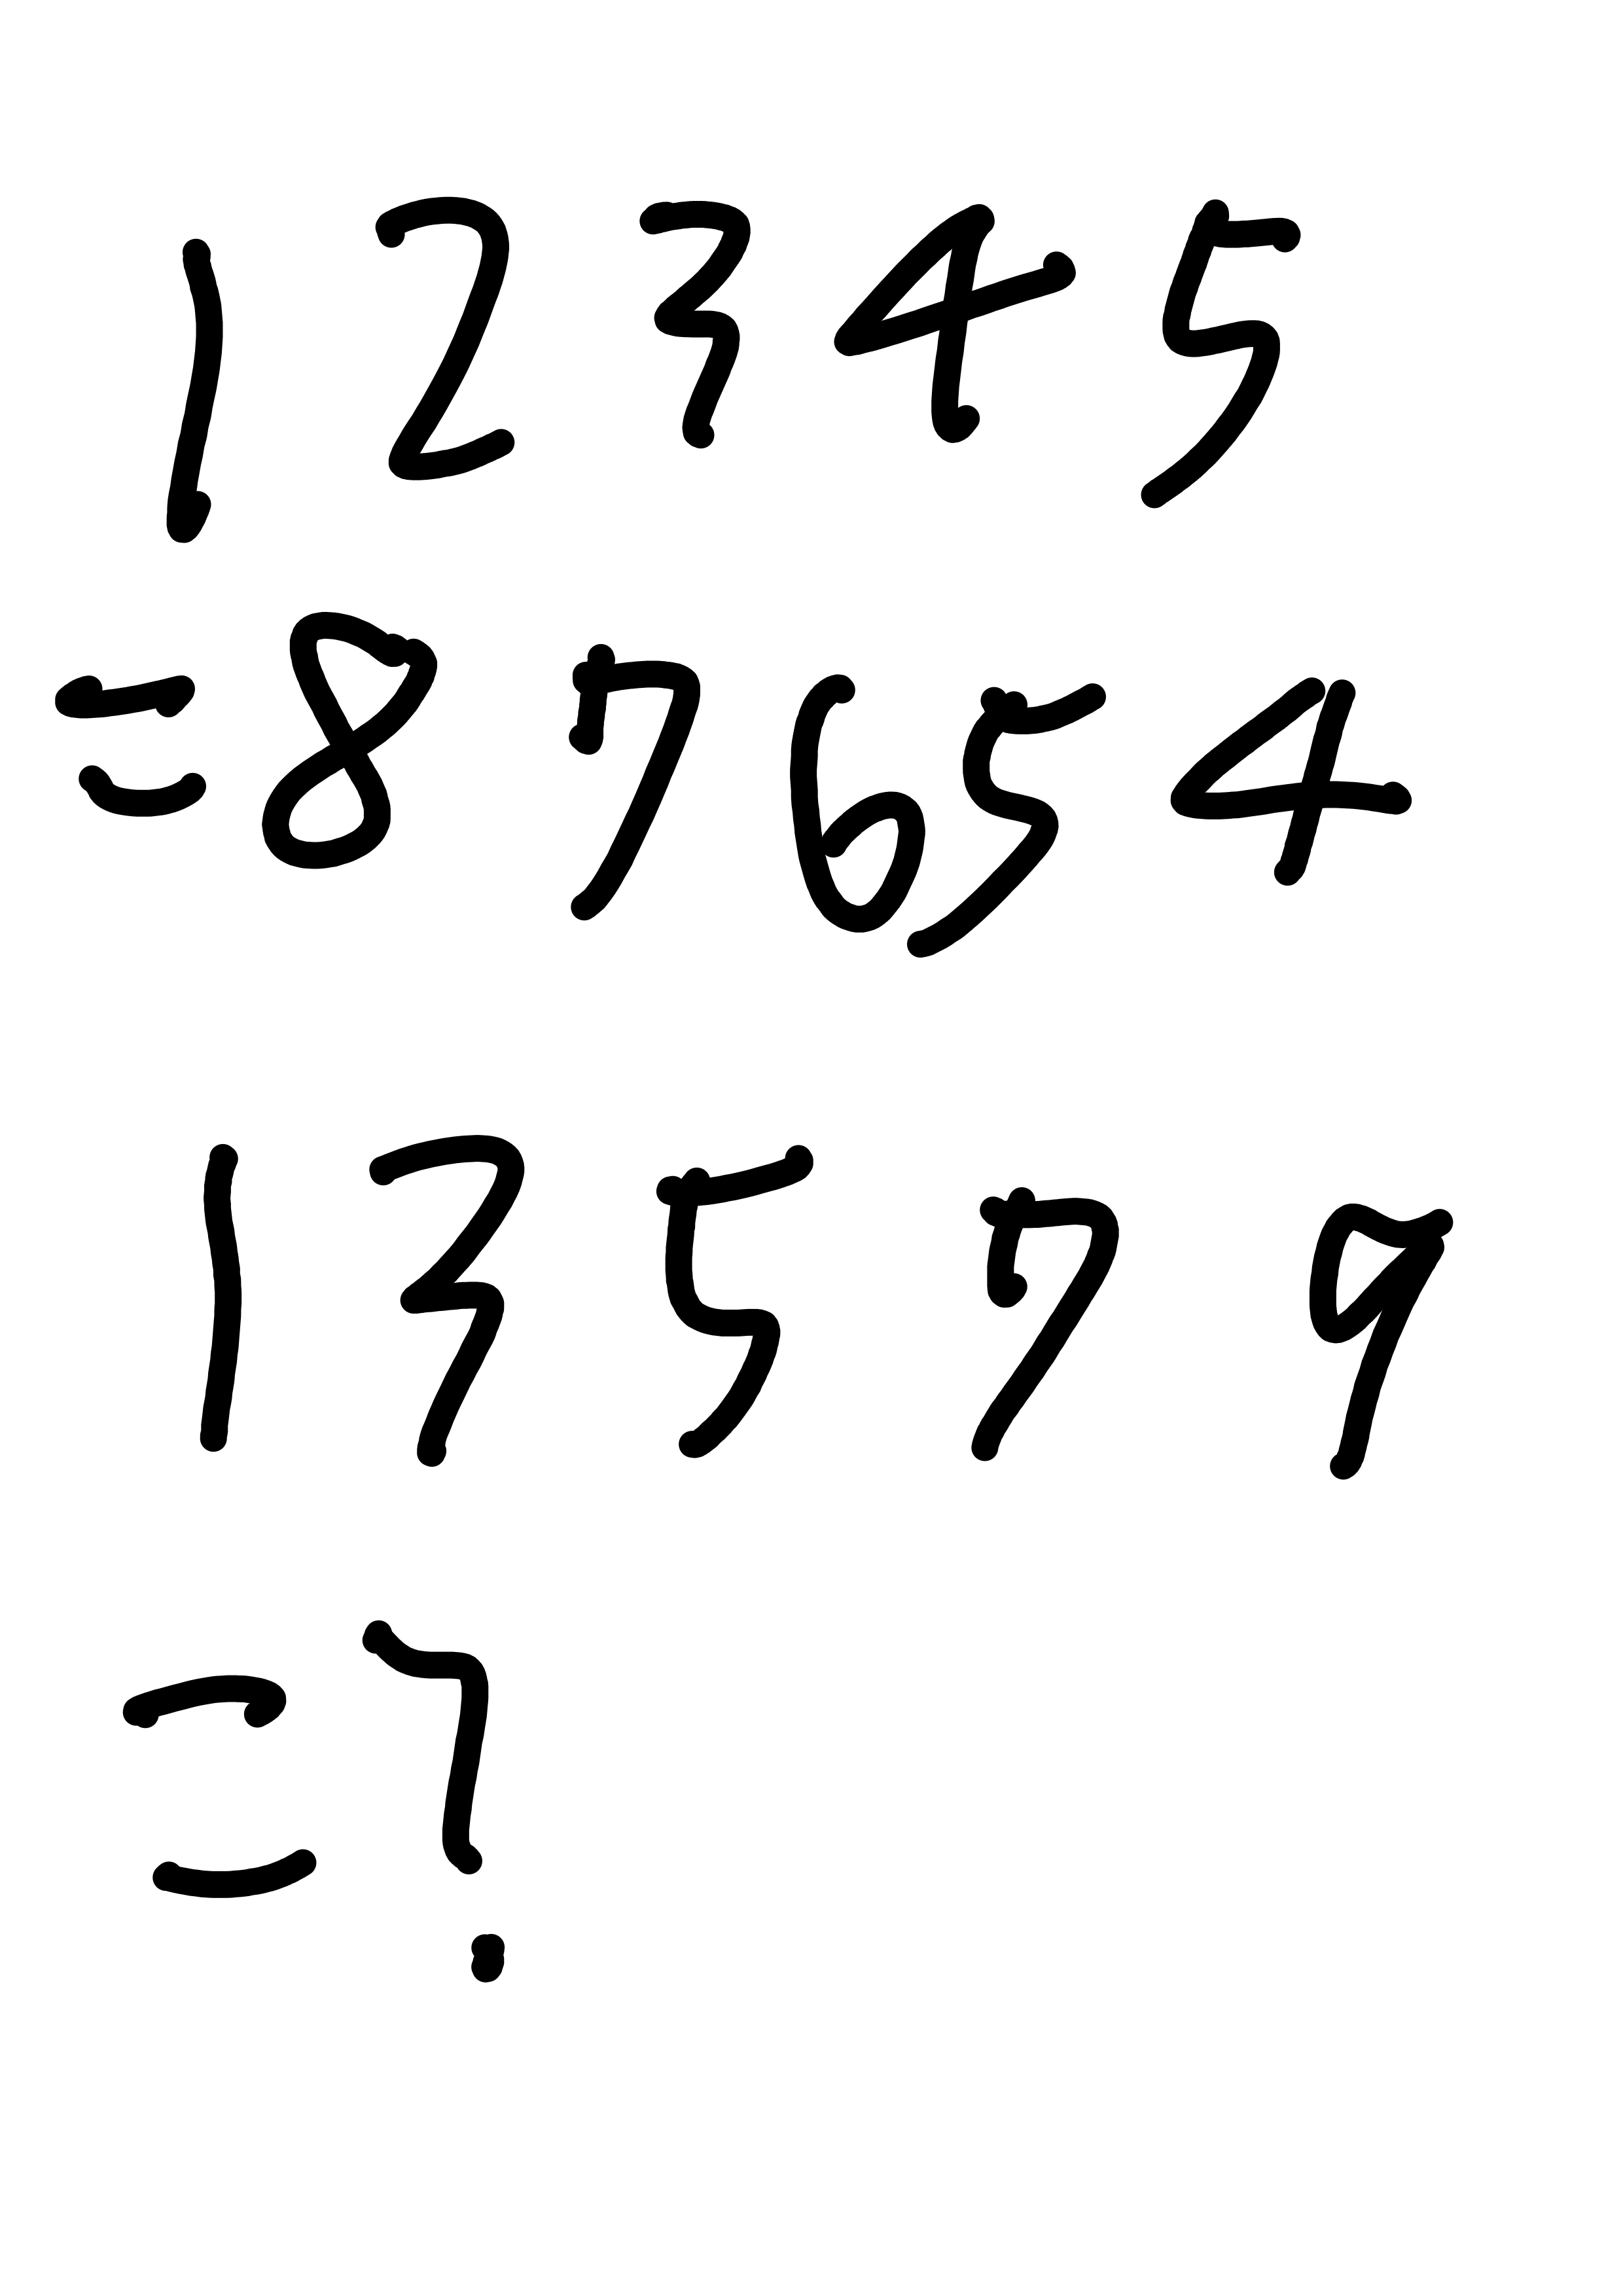 1 2 3 4 5
= 8 7 6 5 4
1 3 5 7 9
= ?